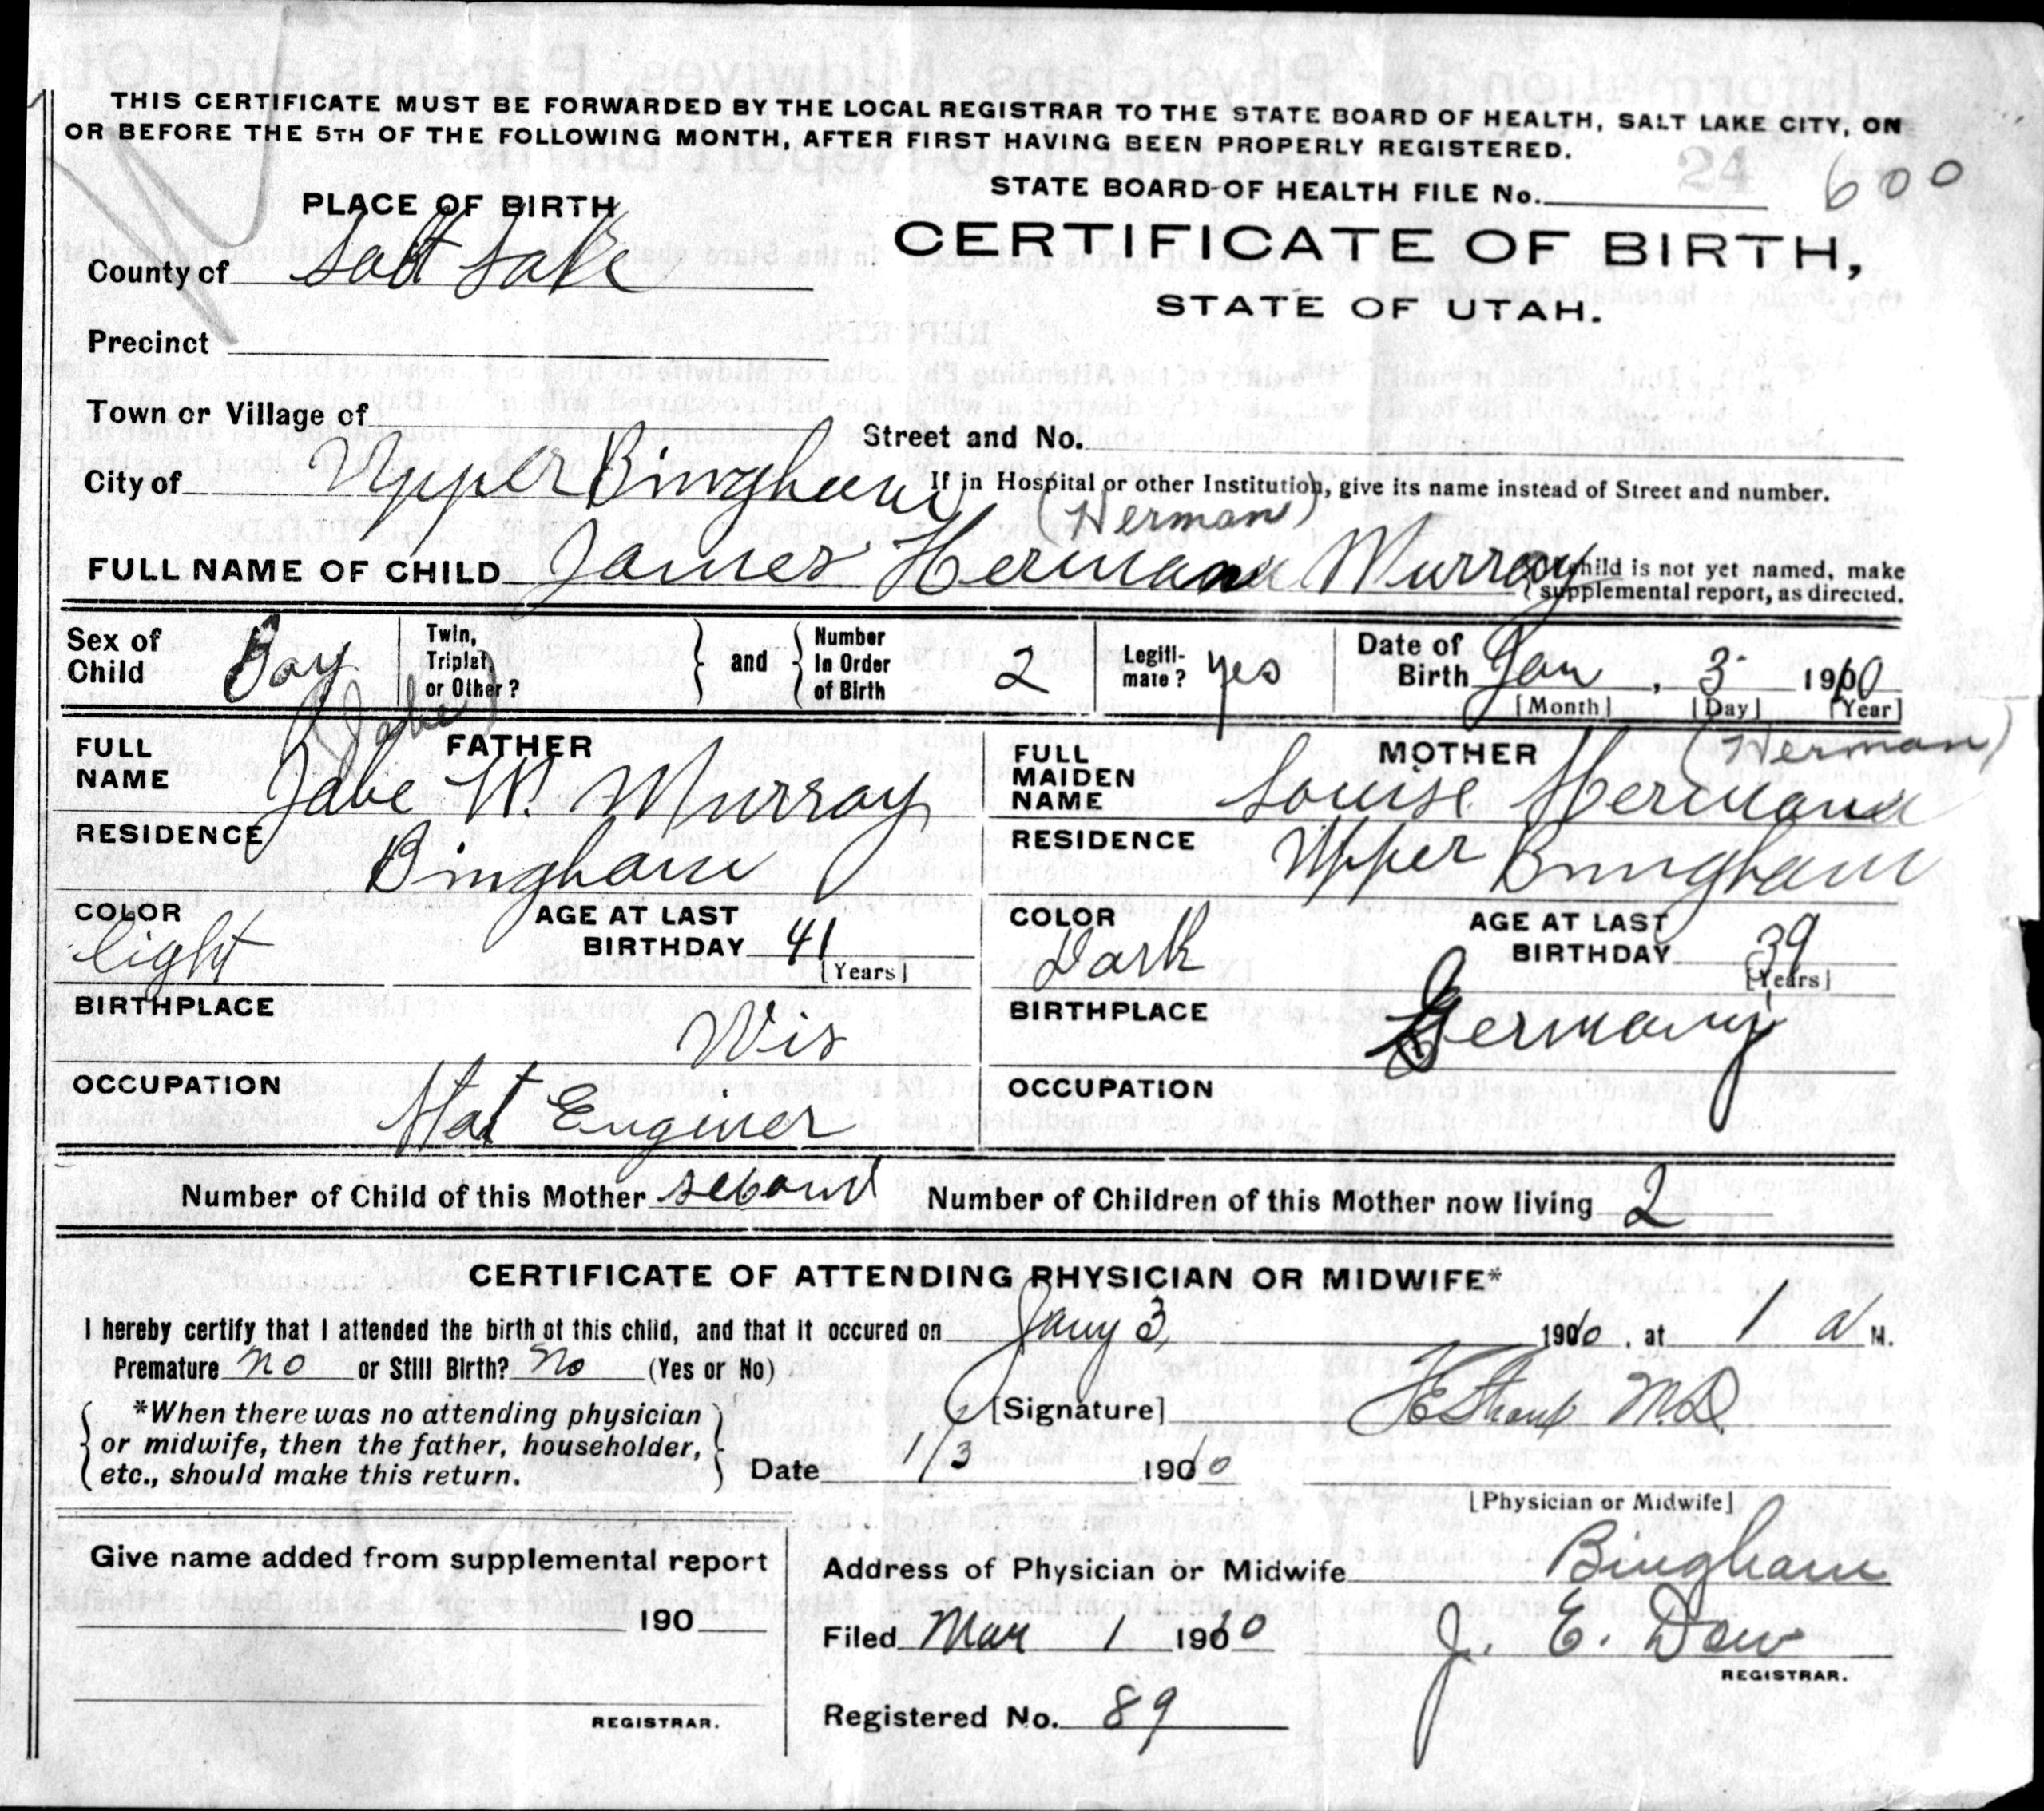 THIS CERTIFICATE MUST BE FORWARDED BY THE LOCAL REGISTRAR TO THE STATE BOARD OF HEALTH, SALT LAKE CITY, ON
OR BEFORE THE 5TH OF THE FOLLOWING MONTH, AFTER FIRST HAVING BEEN PROPERLY REGISTERED.
24 600
STATE BOARD OF HEALTH FILE No.
PLACE OF BIRTH
CERTIFICATE OF BIRTH,
County of Salt Lake
STATE OF UTAH.
Precinct
Town or Village of
Street and No.
City of Upper Bingham
If in Hospital or other Institution, give its name instead of Street and number.
(Herman)
FULL NAME OF CHILD James Hermann Murray
child is not yet named, make
supplemental report, as directed.
Sex of Child Boy
Twin, Triplet, or Other?
and
Number in Order of Birth 2
Legiti-mate? yes
Date of Birth Jan, 3 1910
[Month] [Day] [Year]
(Jabe)
FATHER
FULL NAME Jabe W. Murray
MOTHER (Herman)
FULL MAIDEN NAME Louise Hermann
RESIDENCE Bingham
RESIDENCE Upper Bingham
COLOR light
AGE AT LAST BIRTHDAY 41
[Years]
COLOR Dark
AGE AT LAST BIRTHDAY 39
[Years]
BIRTHPLACE Wis
BIRTHPLACE Germany
OCCUPATION Stat Enginer
OCCUPATION
Number of Child of this Mother second Number of Children of this Mother now living 2
CERTIFICATE OF ATTENDING PHYSICIAN OR MIDWIFE*
I hereby certify that I attended the birth of this child, and that it occured on Jany 3, 1910, at 1 a M.
Premature no or Still Birth? no (Yes or No)
*When there was no attending physician
or midwife, then the father, householder,
etc., should make this return.
[Signature] M.D.
Date 1/3 1910
[Physician or Midwife]
Give name added from supplemental report
190
REGISTRAR.
Address of Physician or Midwife Bingham
Filed Mar 1 1910 J. E. Dow
REGISTRAR.
Registered No. 89